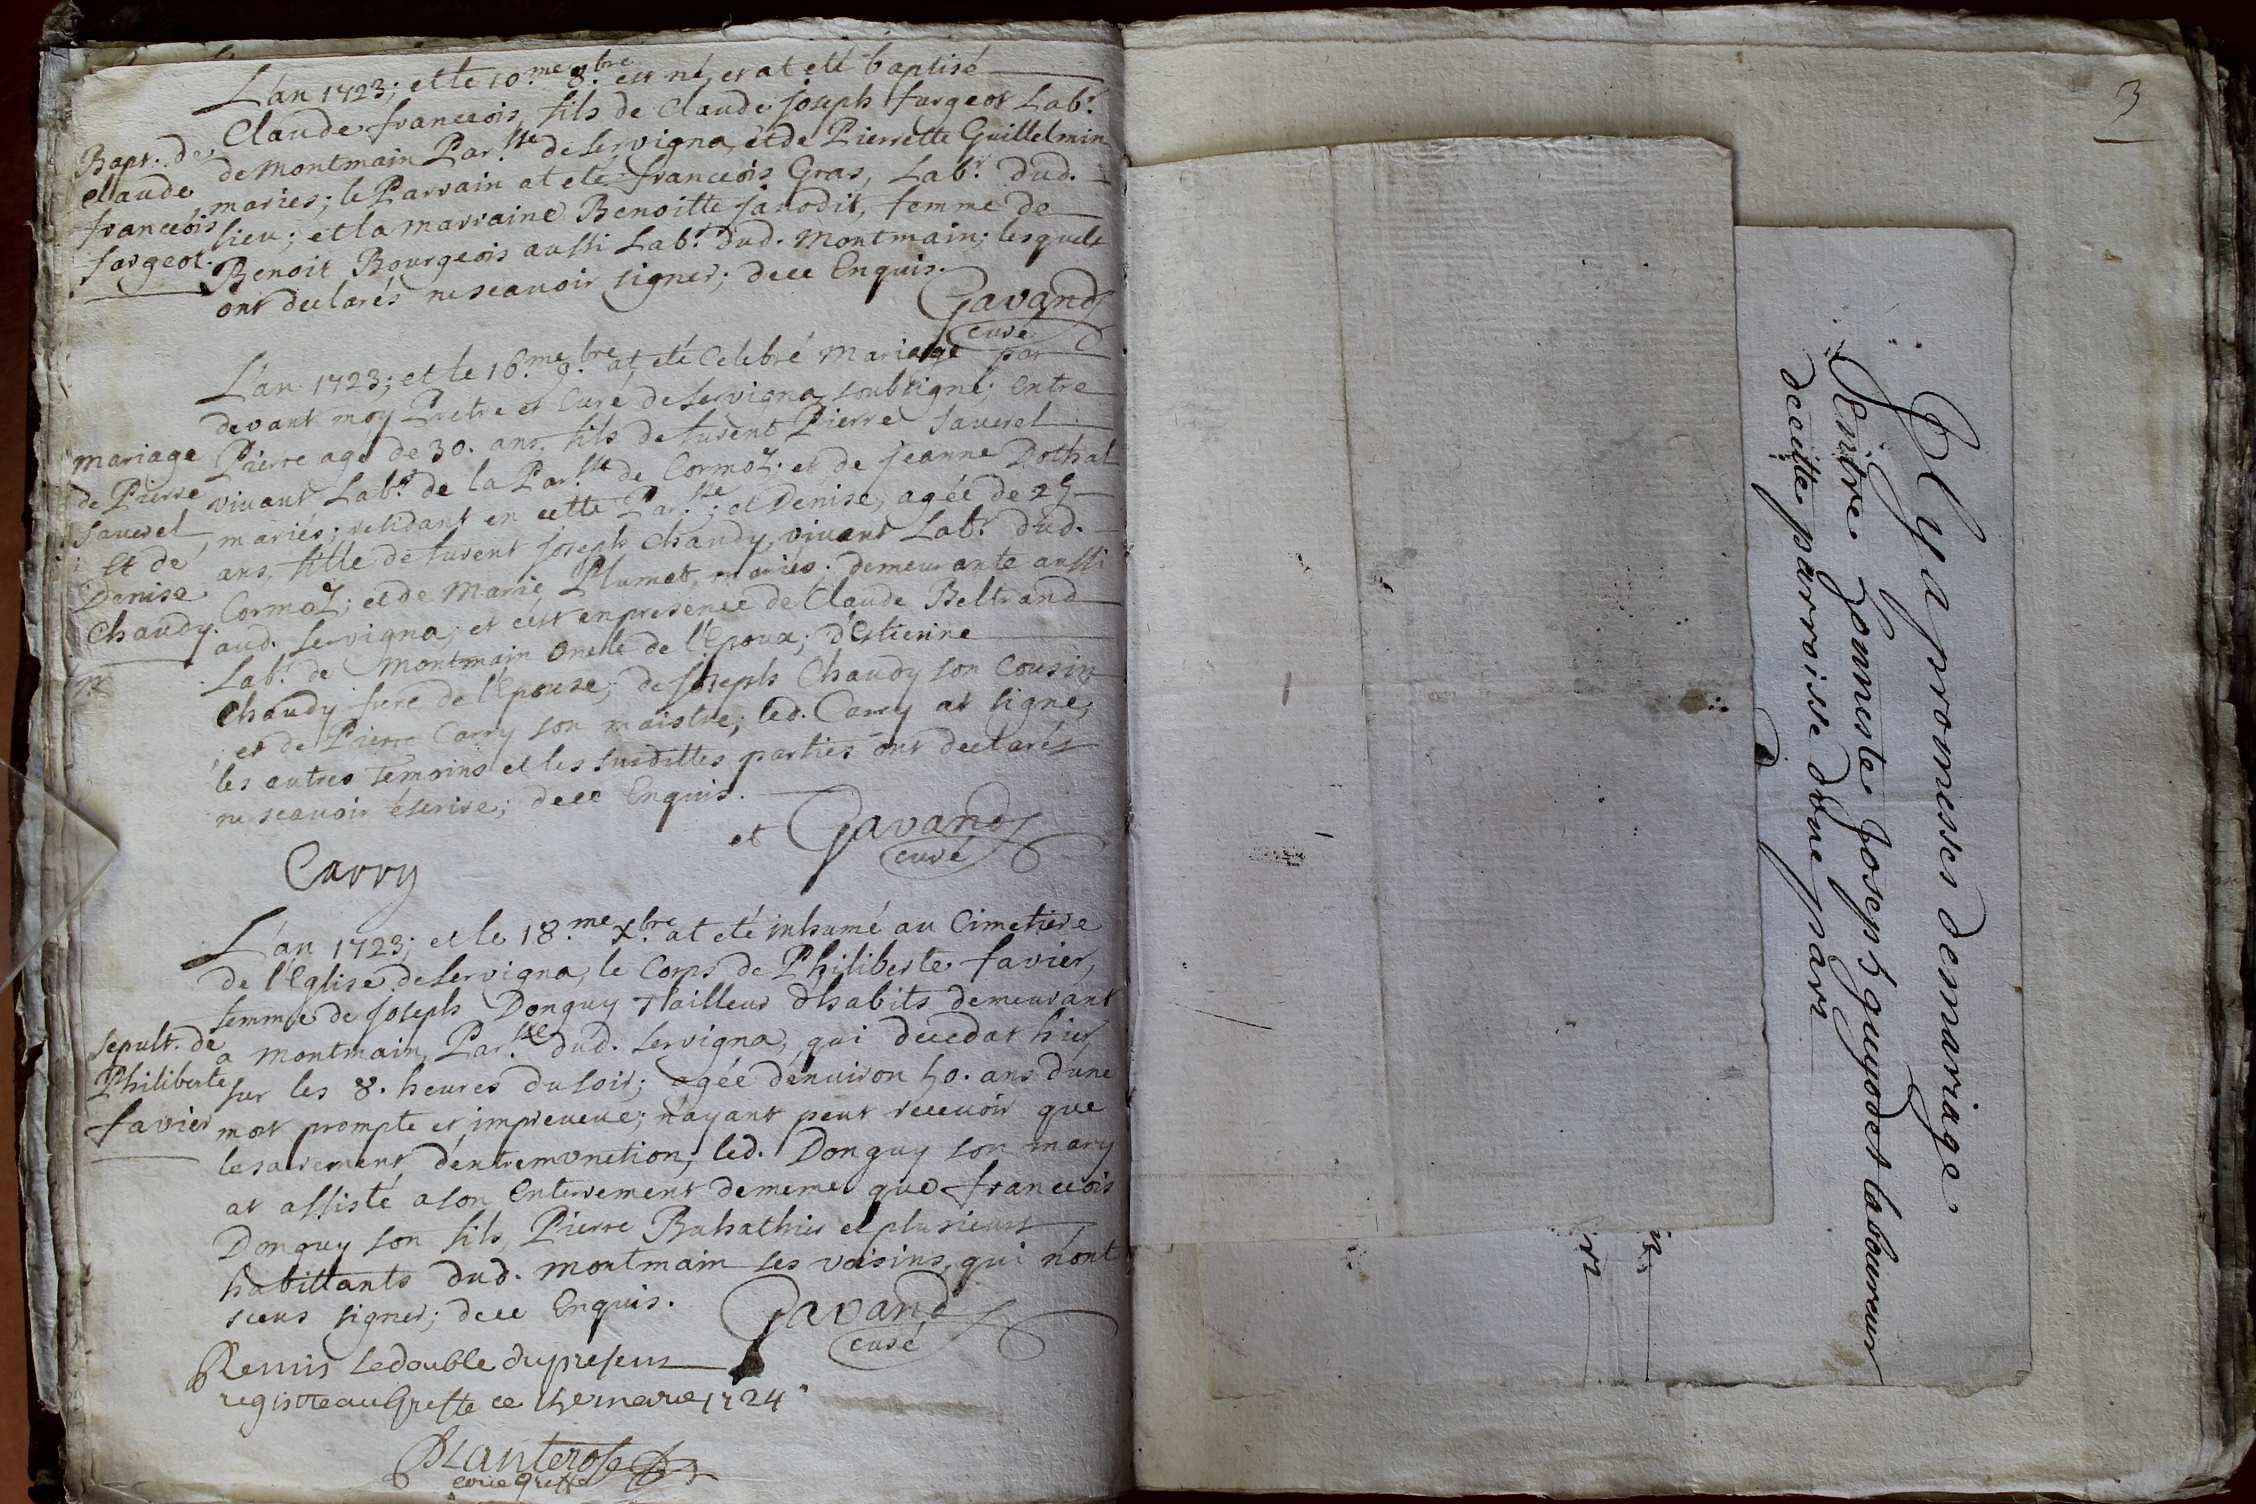 L'an 1723; et le 10.me 8.bre est né, et at eté baptisé
Bapt. de
Claude
francéois
fargeot.
Claude francéois, fils de Claude joseph fargeot Lab.r
de Montmain Par.sse de Servigna, et de Pierrette Guillelmin
mariés; le Parrain at eté francéois Gras, Lab.r dud.
lieu; et la marraine Benoitte janodit, femme de
Benoit Bourgeois aussi Lab.r dud. Montmain; lesquels
ont declarés ne scavoir signer; de ce Enquis.
Gavand
curé
L'an 1723; et le 16.me 9.bre at eté Celebré Mariage par
devant moy Pretre et Curé de Servigna soubsigné; Entre
mariage
de Pierre
Sauvel
Et de
Denise
Chaudy.
Pierre agé de 30. ans, fils de furent Pierre Sauvel
vivant Lab.r de la Par.sse de Cormoz. et de jeanne Dothal
mariés; residant en cette Par.sse; et Denise, agée de 25
ans, fille de furent joseph Chaudy, vivant Lab.r dud.
Cormoz; et de Marie Plumet, mariés; demeurante aussi
aud. Servigna; et c'est en presence de Claude Beltrand
Lab.r de Montmain Oncle de l'Epoux; d'Estienne
Chaudy frere de l'Epouse; de joseph Chaudy son Cousin
et de Pierre Carry son maistre; led. Carry at signé;
les autres Temoins et les susdittes parties ont declarés
ne scavoir éscrire; de ce Enquis.
et Gavand
curé
Carry
L'an 1723; et le 18.me X.bre at eté inhumé au Cimetiere
de l'Eglise de Servigna, le Corps de Philiberte favier,
femme de joseph Donguy Tailleur d'habits demeurant
Sepult. de
Philiberte
favier
a Montmain, Par.sse dud. Servigna, qui decedat hier,
sur les 8. heures du soir; agée d'enuiron 50. ans d'une
mort prompte et impreueue; n'ayant peut receuoir que
le sacrement d'entremonction; led. Donguy son mary
at assisté a son Enterrement de meme que francéois
Donguy son fils, Pierre Buhathier et plusieurs
habittants dud. montmain ses voisins, qui n'ont
sceus signer; de ce Enquis.
Gavand
curé
Remis le double du present
registre au Greffe ce mars 1724
Planterose
3
Il y a promesses de mariage
Entre honneste Joseph guyodet laboureur
de cette parroisse d'une part